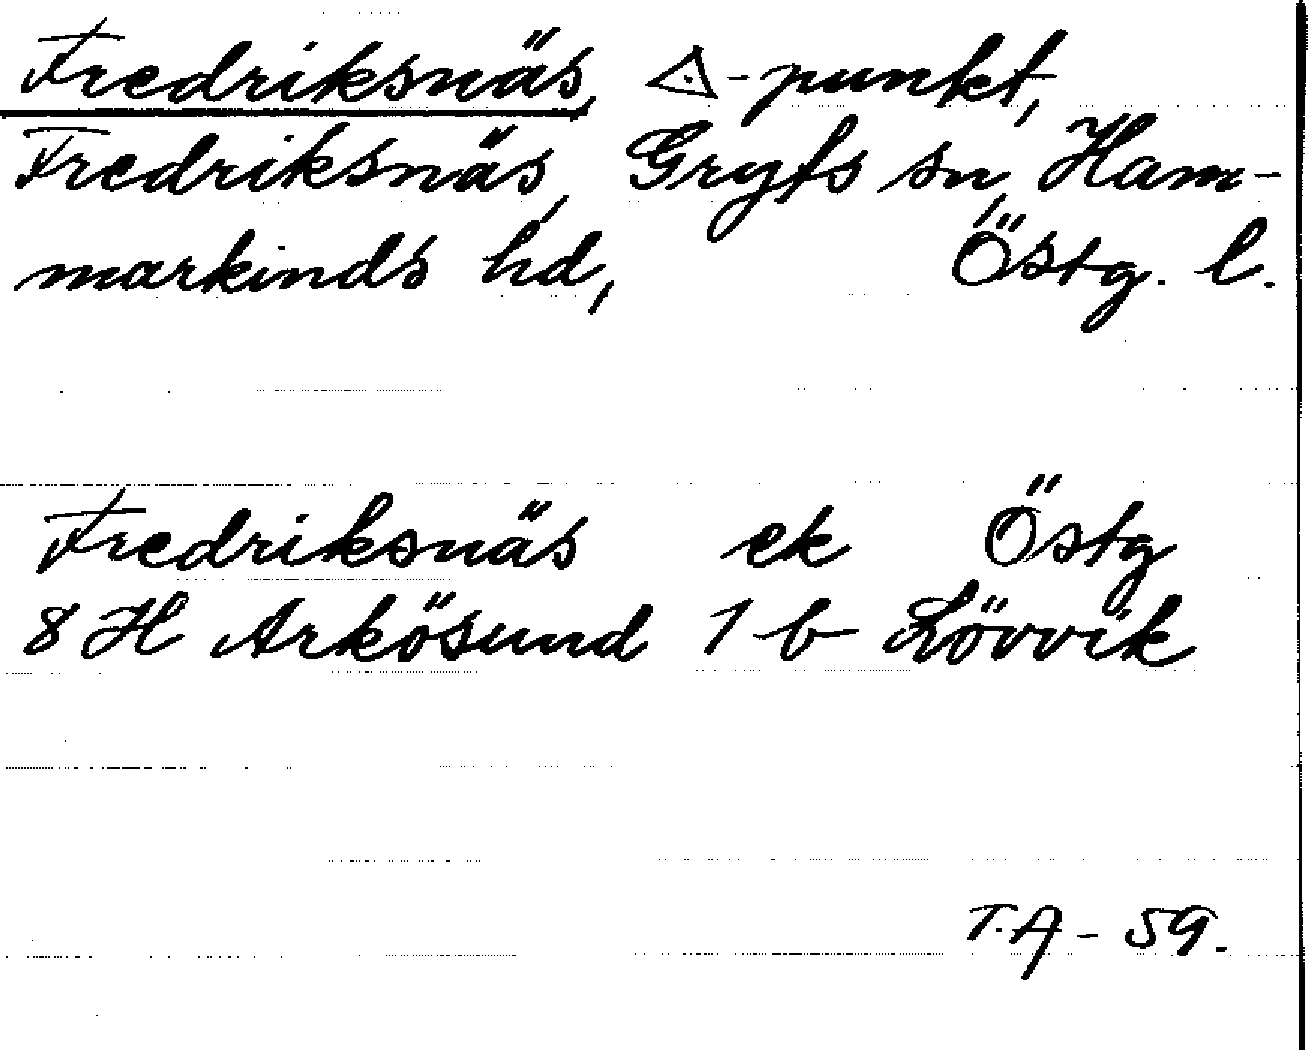 Fredriksnäs, △-punkt,
Fredriksnäs, Gryts sn, Ham-
markinds hd, Östg. l.
Fredriksnäs ek Östg
8 H Arkösund 1 b Lövvik
T.A - 59.